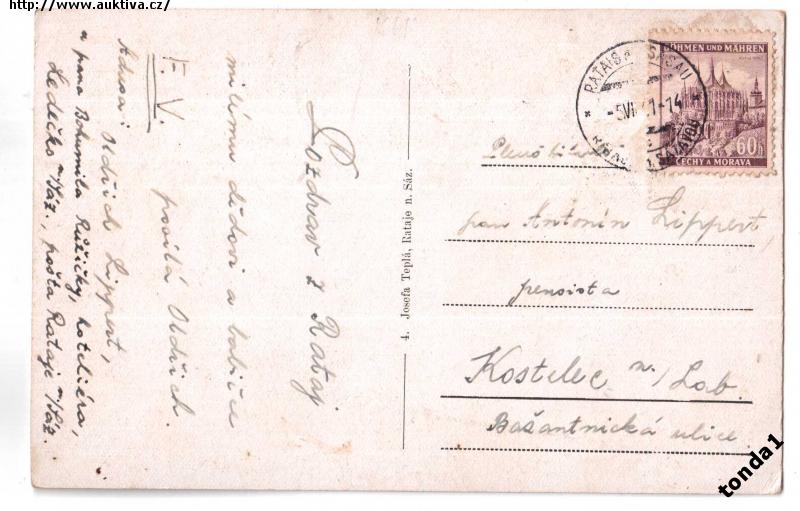 http://www.auktiva.cz/
Pozdrav z Rataj
milému dědovi a babičce
posílá Oldřich.
F. V.
Adresa:
Oldřich Lippert,
u pana Bohumila Růžičky, hoteliéra,
Ledečko n/Sáz., pošta Rataje n/Sáz.
4. Josefa Teplá, Rataje n. Sáz.
BÖHMEN UND MÄHREN
60h
ČECHY A MORAVA
RATAIS A. SASAU
-5.VI. 41-14
RATAJE N. SÁZAVOU
pan Antonín Lippert,
pensista
Kostelec n/Lab.
Bažantnická ulice.
tonda1